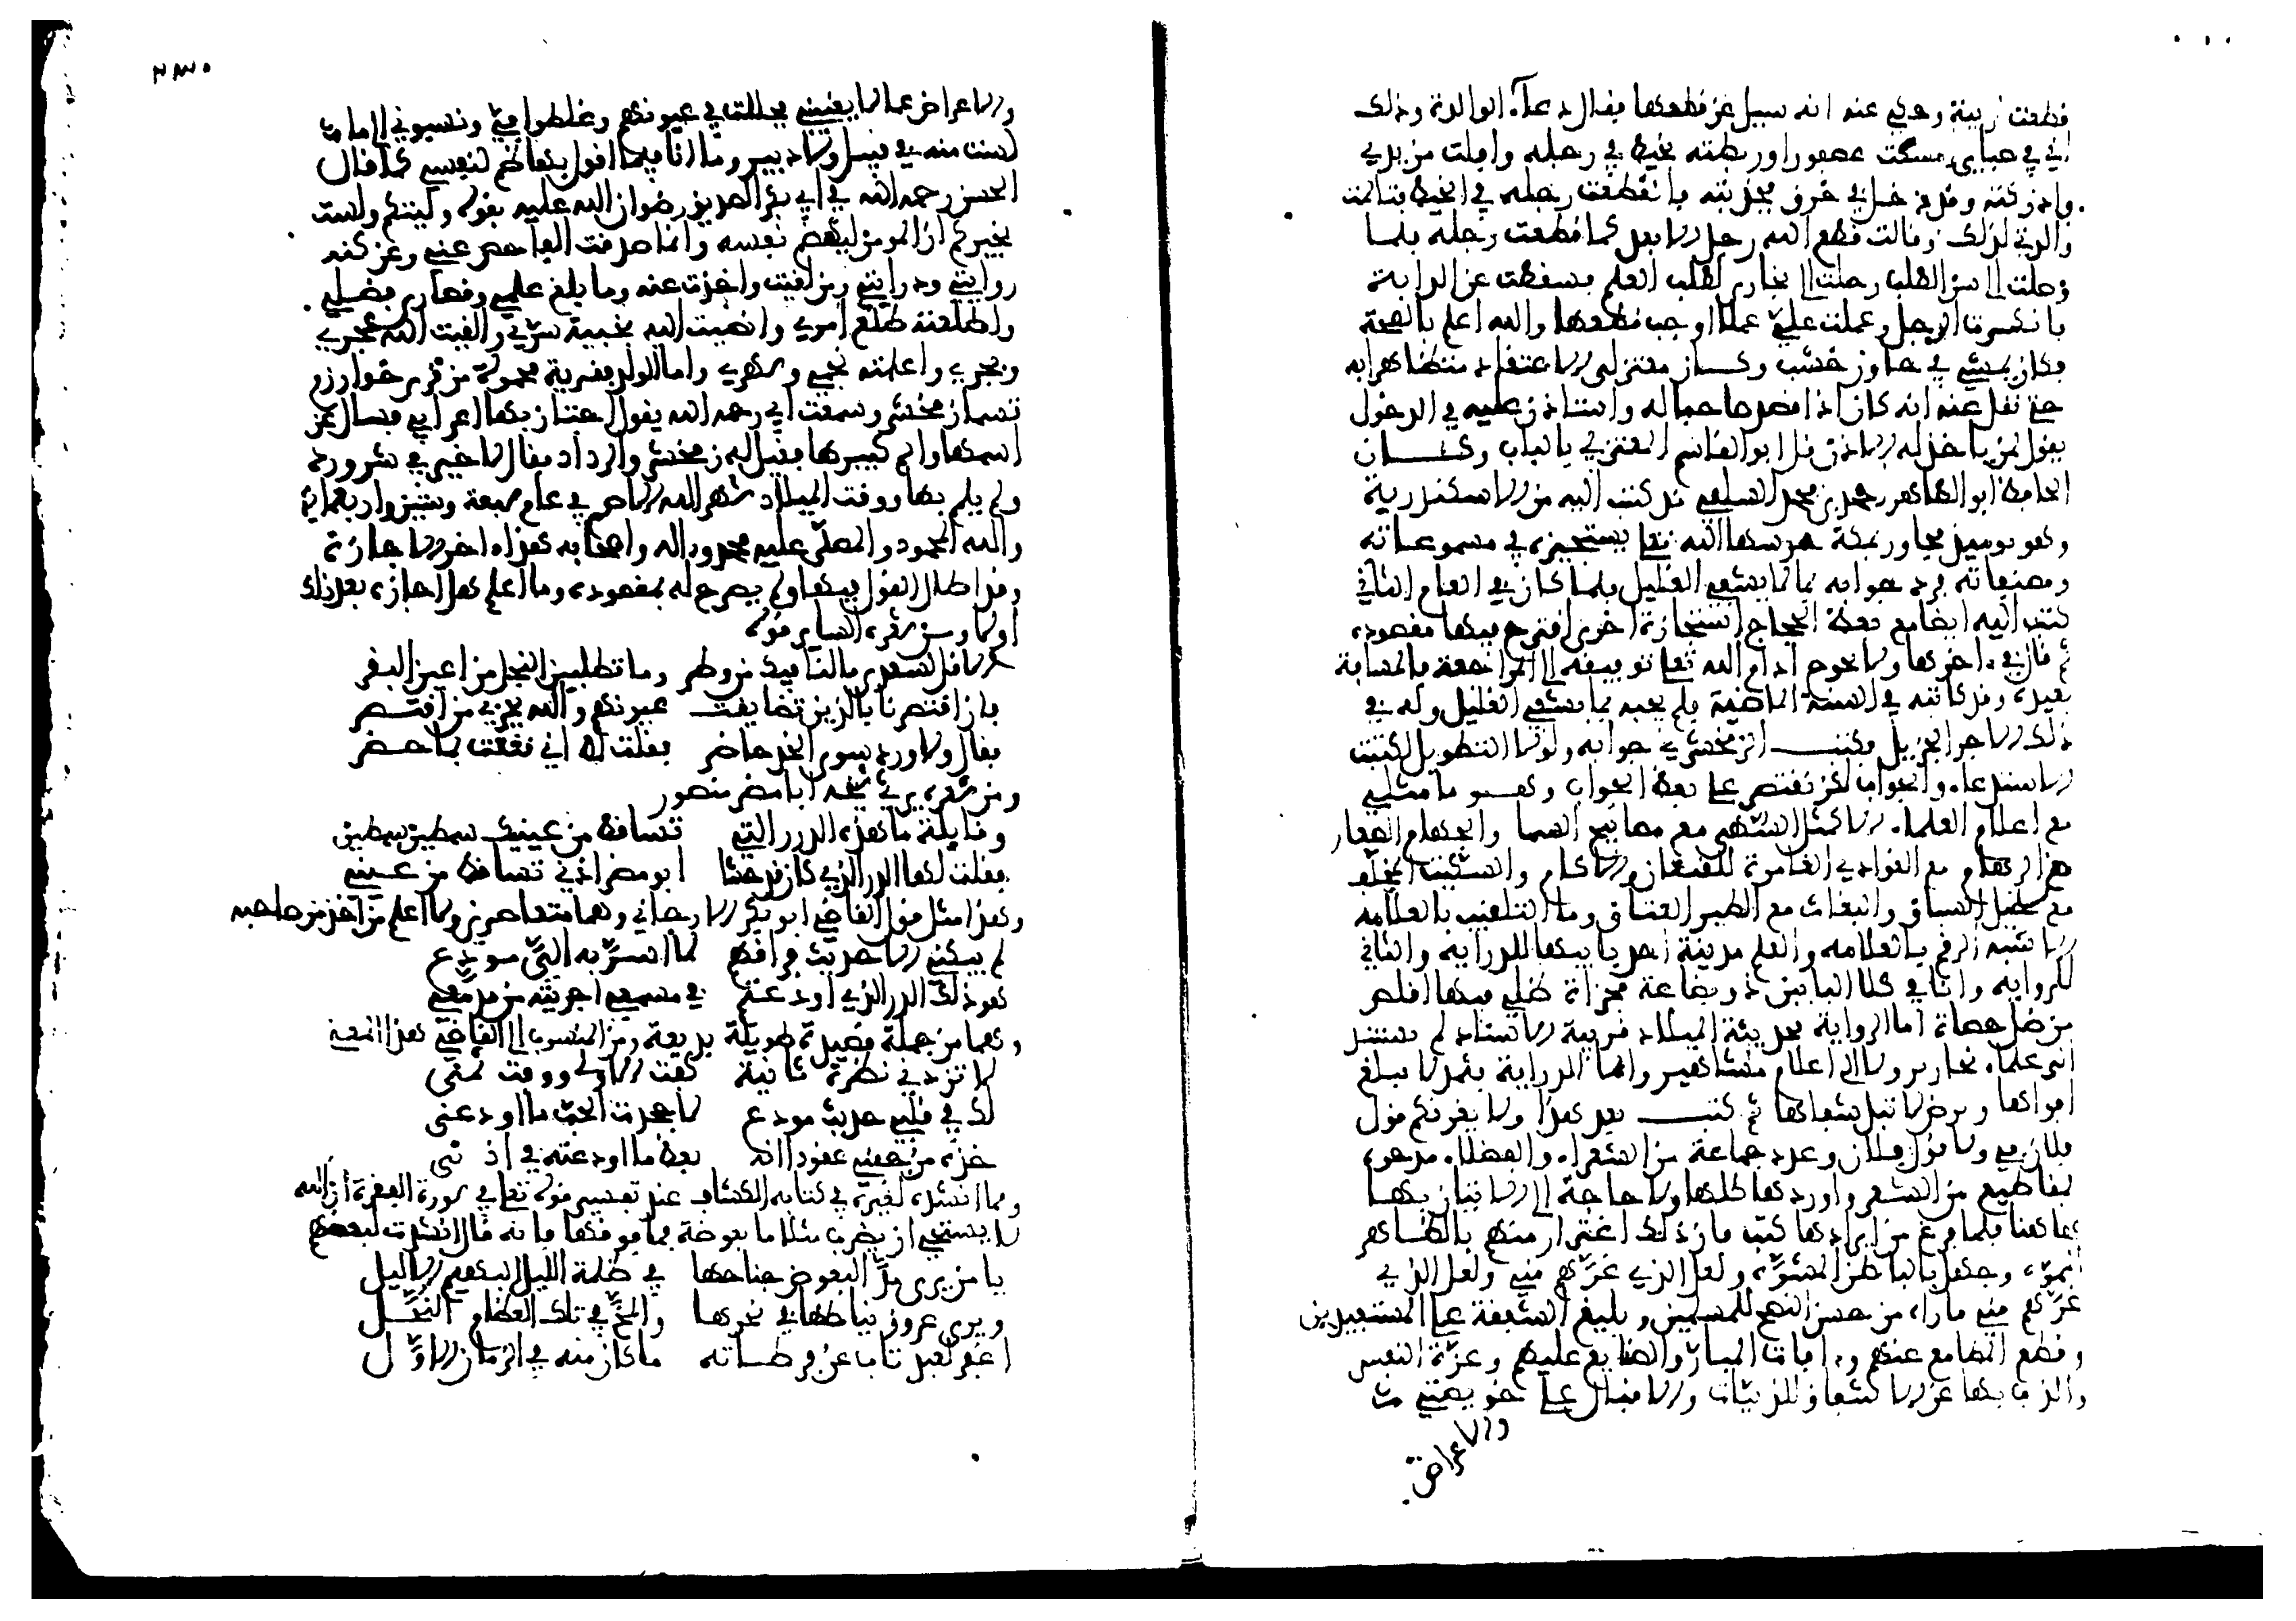 فطعت ريبة وحكي عنه انه سيل عن قطعها فقال دعاء الوالدة وذلك
اني في صباي مسكت عصفورا وربطته بخيط في رجله وافلت من يدي
وادركته وقد دخل في خرق فجذبته فانقطعت رجله في الخيط فتالمت
والدتي لذلك وقالت قطع الله رجل الابعد كما قطعت رجله فلما
وصلت الى سن الطلب رحلت الى بخارى لطلب العلم فسقطت عن الدابة
فانكسرت الرجل وعملت علي عملا اوجب قطعها والله اعلم بالصحة
فكان يمشي في جاون خشب وكان معتزلي الاعتقاد متظاهرا به
حتى نقل عنه انه كان اذا قصد صاحبا له واستاذن عليه في الدخول
يقول لمن ياخذ له الاذن قل ابو القاسم المعتزلي بالباب وكان
الحافظ ابو الطاهر احمد بن محمد السلفي قد كتب اليه من الاسكندرية
وهو يوميذ مجاور بمكة حرسها الله تعلى يستجيزه في مسموعاته
ومصنفاته فرد جوابه بما لا يشفي الغليل فلما كان في العام الثاني
كتب اليه ايضا مع بعض الحجاج استجازة اخرى اقترح فيها مقصوده
ثم قال في اخرها ولا يحوج ادام الله تعلى توفيقه الى المراجعة فالمسافة
بعيدة وقد كاتبه في السنة الماضية فلم يجبه بما يشفي الغليل وله في
ذلك الاجر الجزيل فكتب الزمخشري جوابه ولولا التطويل لكتبت
الاستدعاء والجواب لكن نقتصر على بعض الجواب وهو ما مثلي
مع اعلام العلماء الا كمثل السهى مع مصابيح السما والجهام الصفار
من الرهام مع الغوادي الغامرة للقيعان والاكام والسكيت المخلف
مع خيل السباق والبغاث مع الطير العتاق وما التلقيب بالعلامة
الا شبه الرقم بالعلامه والعلم مدينة احد بابيها الدرايه والثاني
الروايه وانا في كلا البابين ذو بضاعة مزجاة ظلي فيها اقلص
من ظل حصاة اما الرواية فحديثة الميلاد قريبة الاسناد لم تستند
الى علماء نحارير ولا الى اعلام مشاهير واما الدراية فثمد لا يبلغ
افواها وبرض لا يبل شفاها ثم كتب بعد هذا ولا يغرنكم قول
فلان في ولا قول فلان وعدد جماعة من الشعراء والفضلاء مدحوه
بمقاطيع من الشعر واوردها كلها ولا حاجة الى الاتيان بها
هاهنا فلما فرغ من ايرادها كتب فان ذلك اغترار منهم بالظاهر
المموه وجهل بالباطن المشوه ولعل الذي غرهم مني ولعل الذي
غرهم مني ما راوه من حسن النصح للمسلمين وبليغ الشفقة على المستفيدين
وقطع المطامع عنهم وافاضات المبار والصنايع عليهم وعزة النفس
والذب بها عن الاسفاف للدنيات والاقبال على خويصتي
والاعراض
والاعراض عما لا يعنيني فجللت في عيونهم وغلطوا في ونسبوني الى ما
لست منه في قبيل ولا دبير وما انا فيما اقول بهاضم لنفسي كما قال
الحسن رحمه الله في ابي بكر الصديق رضوان الله عليه بقوله وليتكم ولست
بخيركم ان المومن ليهضم نفسه وانما صدقت الفاحص عني وعن كنه
روايتي ودرايتي ومن لقيت واخذت عنه وما بلغ علمي وقصارى فضلي
واطلعته طلع امري وافضيت اليه بخبية سري والقيت اليه عجري
وبجري واعلمته نجمي وشجري واما المولد فقرية مجهولة من قرى خوارزم
تسمى زمخشر وسمعت ابي رحمه الله يقول اجتاز بها اعرابي فسال عن
اسمها واسم كبيرها فقيل له زمخشر والرداد فقال لا خير في شر ورد
ولم يلم بها ووقت الميلاد شهر الله الاصم في عام سبعة وستين واربعماية
والله المحمود والمصلى عليه محمد واله واصحابه هذا اخر الاجازة
وقد اطال القول فيها ولم يصرح له بمقصوده وما اعلم هل اجازه بعد ذلك
او لا ومن شعره الساير قوله
الا قل لسعدى ما لنا فيك من وطر   وما تطلبين النجل من اعين البقر
فانا اقتصرنا بالذين تضايقت   عيونهم والله يجزي من اقتصر
فقال ولا ورد سوى الخد حاضر   فقلت له اني قنعت بما حضر
ومن شعره يرثي شيخه ابا مضر منصور
وقايلة ما هذه الدرر التي   تساقط من عينيك سمطين سمطين
فقلت لها الدر الذي كان قد حشا   ابو مضر اذني تساقط من عيني
وهذا مثل قول القاضي ابو بكر الارجاني وهما متعاصرين ولا اعلم من اخذ من صاحبه
لم يبكني الا حديث فراقهم   لما اسر به الي مودع
هو ذلك الدر الذي اودعتم   في مسمعي اجريته من مدمعي
وهما من جملة قصيدة طويلة بديعة ومن المنسوب الى القاضي هذا المعنى
لا تزدني نظرة ثانية   كفت الاولى ووفت ثمني
لك في قلبي حديث مودع   لا جحدت الحب ما اودعني
خذه من جفني عقودا انه   بعض ما اودعته في اذني
ومما انشده لغيره في كتابه الكشاف عند تفسير قوله تعلى في سورة البقرة ان الله
لا يستحيي ان يضرب مثلا ما بعوضة فما فوقها فانه قال انشدت لبعضهم
يا من يرى مد البعوض جناحها   في ظلمة الليل البهيم الاليل
ويرى عروق نياطها في نحرها   والمخ في تلك العظام النحل
اغفر لعبد تاب عن فرطاته   ما كان منه في الزمان الاول